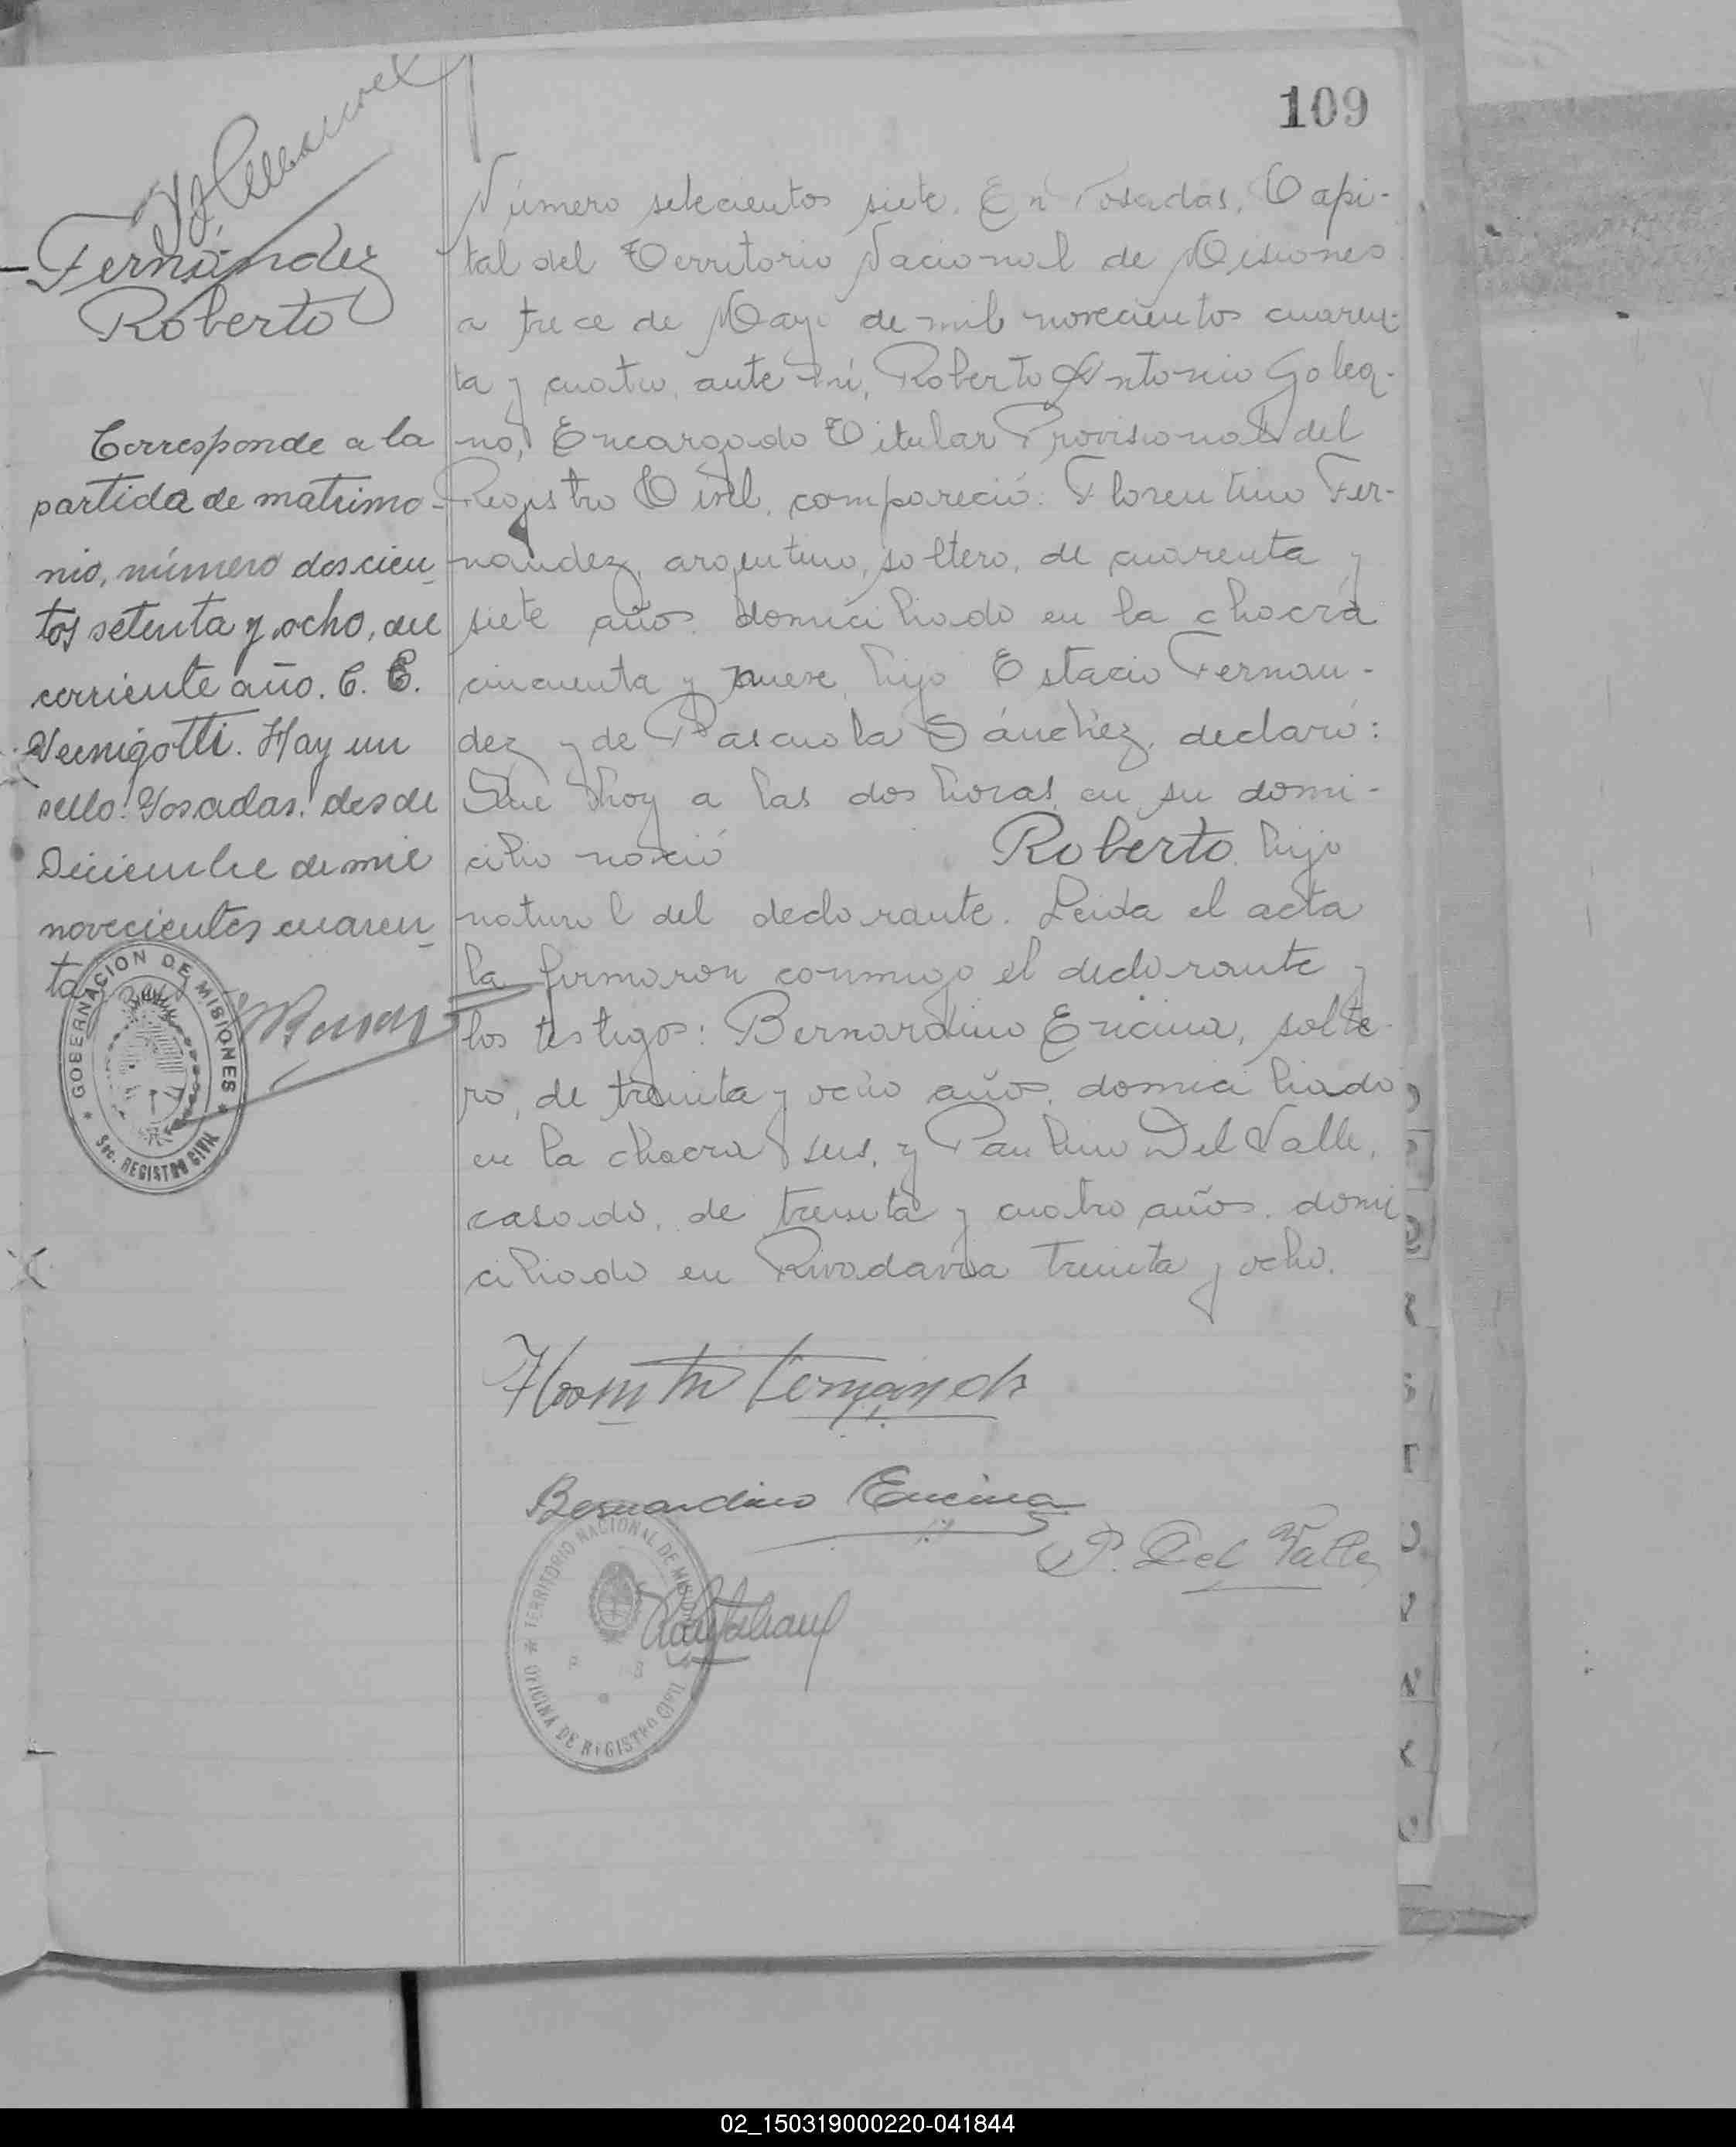 109
Fernández
Roberto
Corresponde a la
partida de matrimo-
nio, número doscien-
tos setenta y ocho, del
corriente año. C. E.
Vernigotti. Hay un
sello. Posadas.
Diciembre de mil
novecientos cuaren-
ta
GOBERNACION DE MISIONES
Sec. REGISTRO CIVIL
Número setecientos siete. En Posadas, Capi-
tal del Territorio Nacional de Misiones
a trece de Mayo de mil novecientos cuaren-
ta y cuatro, ante mí, Roberto Antonio Galea-
no, Encargado Titular Provisional del
Registro Civil, compareció: Florentino Fer-
nandez, argentino, soltero, de cuarenta y
siete años, domiciliado en la chacra
cincuenta y nueve, hijo Estacio Fernan-
dez y de Pascuala Sánchez, declaró:
Que hoy a las dos horas, en su domi-
cilio nació Roberto, hijo
natural del declarante. Leida el acta
la firmaron conmigo el declarante y
los testigos: Bernardino Encina, solte-
ro, de treinta y ocho años, domiciliado
en la chacra seis, y Paulino Del Valle,
casado, de treinta y cuatro años, domi
ciliado en Rivadavia treinta y ocho.
Bernardino Encina
P. Del Valle
TERRITORIO NACIONAL DE MISIONES
OFICINA DE REGISTRO CIVIL
02_150319000220-041844